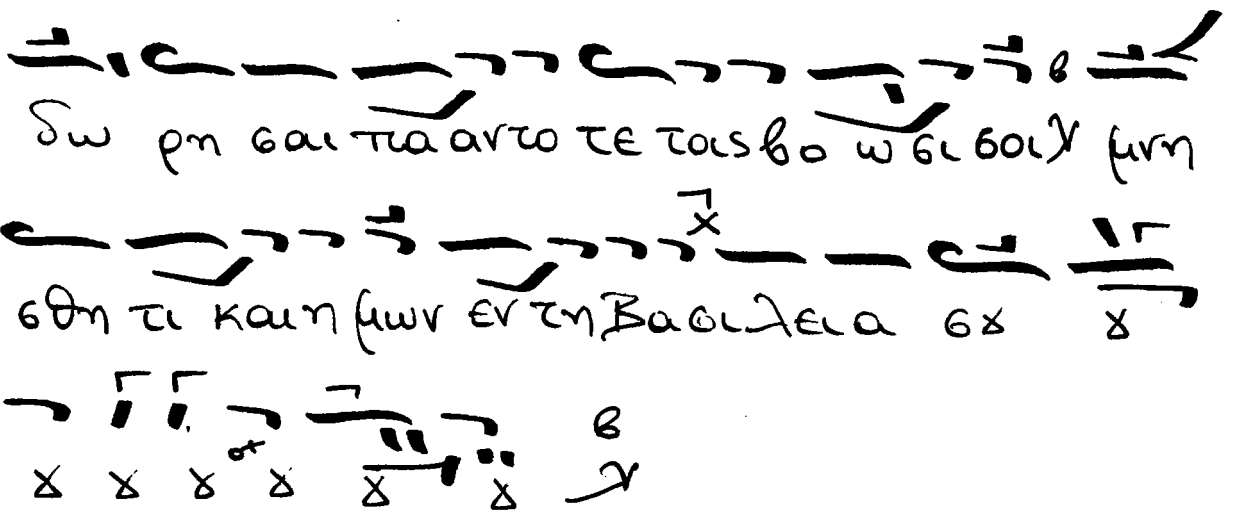 δω ρη σαι πα αν το τε τοις βο ω σι σοι μνη
σθη τι και η μων εν τη Βα σι λει α σȣ ȣ
ȣ ȣ ȣ ȣ ȣ ȣ